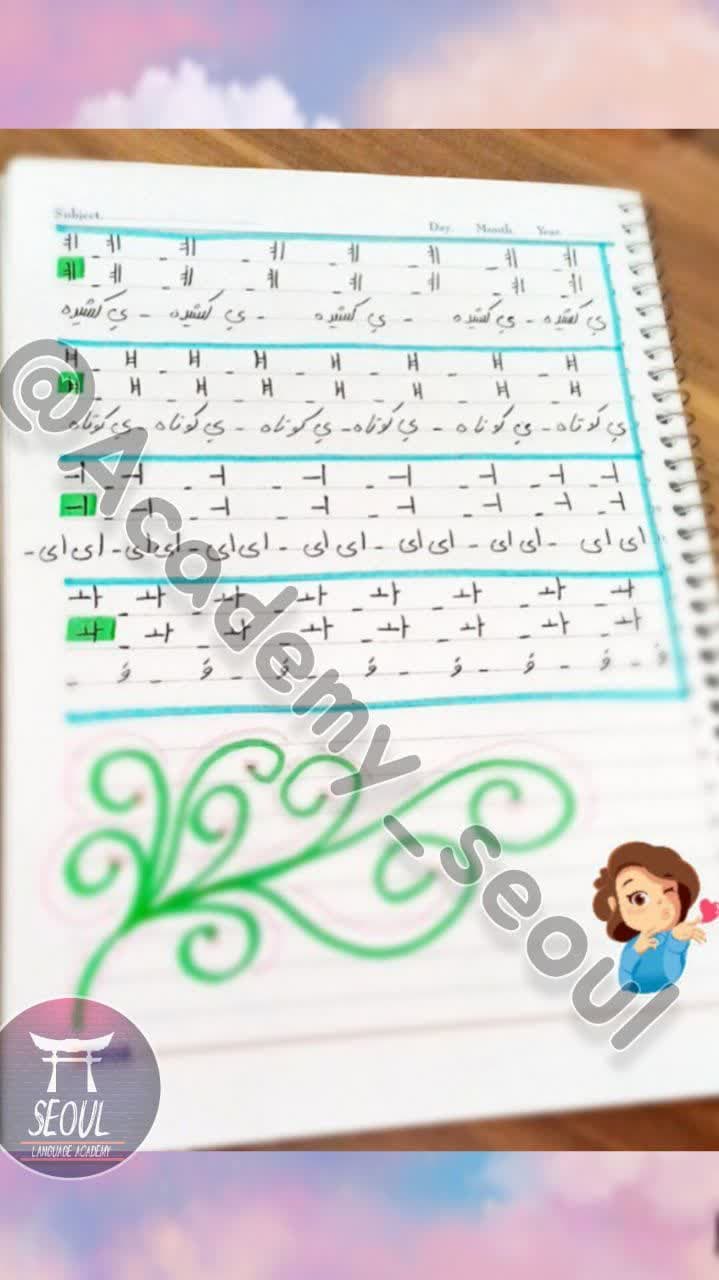 Subject.
Day. Month. Year.
ㅖ - ㅖ - ㅖ - ㅖ - ㅖ - ㅖ - ㅖ - ㅖ
ㅖ - ㅖ - ㅖ - ㅖ - ㅖ - ㅖ - ㅖ - ㅖ
ی کشیده - ی کشیده - ی کشیده - ی کشیده - ی کشیده
ㅐ - ㅐ - ㅐ - ㅐ - ㅐ - ㅐ - ㅐ - ㅐ
ㅐ - ㅐ - ㅐ - ㅐ - ㅐ - ㅐ - ㅐ - ㅐ
ی کوتاه - ی کوتاه - ی کوتاه - ی کوتاه - ی کوتاه - ی کوتاه
ㅢ - ㅢ - ㅢ - ㅢ - ㅢ - ㅢ - ㅢ - ㅢ
ㅢ - ㅢ - ㅢ - ㅢ - ㅢ - ㅢ - ㅢ - ㅢ
ای ای - ای ای - ای ای - ای ای - ای ای - ای ای - ای ای -
ㅘ - ㅘ - ㅘ - ㅘ - ㅘ - ㅘ - ㅘ - ㅘ
ㅘ - ㅘ - ㅘ - ㅘ - ㅘ - ㅘ - ㅘ - ㅘ
وَ - وَ - وَ - وَ - وَ - وَ - وَ - وَ -
@Academy_seoul
SEOUL
LANGUAGE ACADEMY